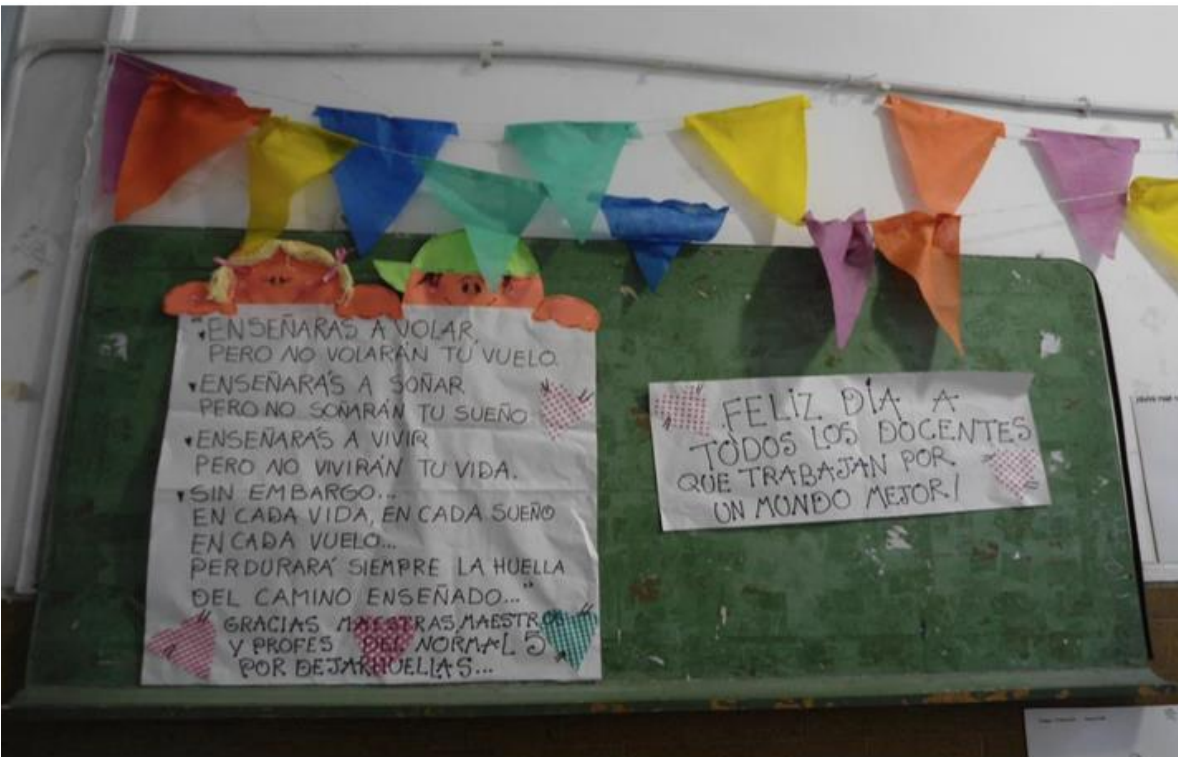 "ENSEÑARÁS A VOLAR,
PERO NO VOLARÁN TU VUELO.
ENSEÑARÁS A SOÑAR
PERO NO SOÑARÁN TU SUEÑO
ENSEÑARÁS A VIVIR
PERO NO VIVIRÁN TU VIDA.
SIN EMBARGO...
EN CADA VIDA, EN CADA SUEÑO
EN CADA VUELO...
PERDURARÁ SIEMPRE LA HUELLA
DEL CAMINO ENSEÑADO..."
GRACIAS MAESTRAS, MAESTROS
Y PROFES DEL NORMAL 5
POR DEJAR HUELLAS...
¡FELIZ DÍA A
TODOS LOS DOCENTES
QUE TRABAJAN POR
UN MUNDO MEJOR!